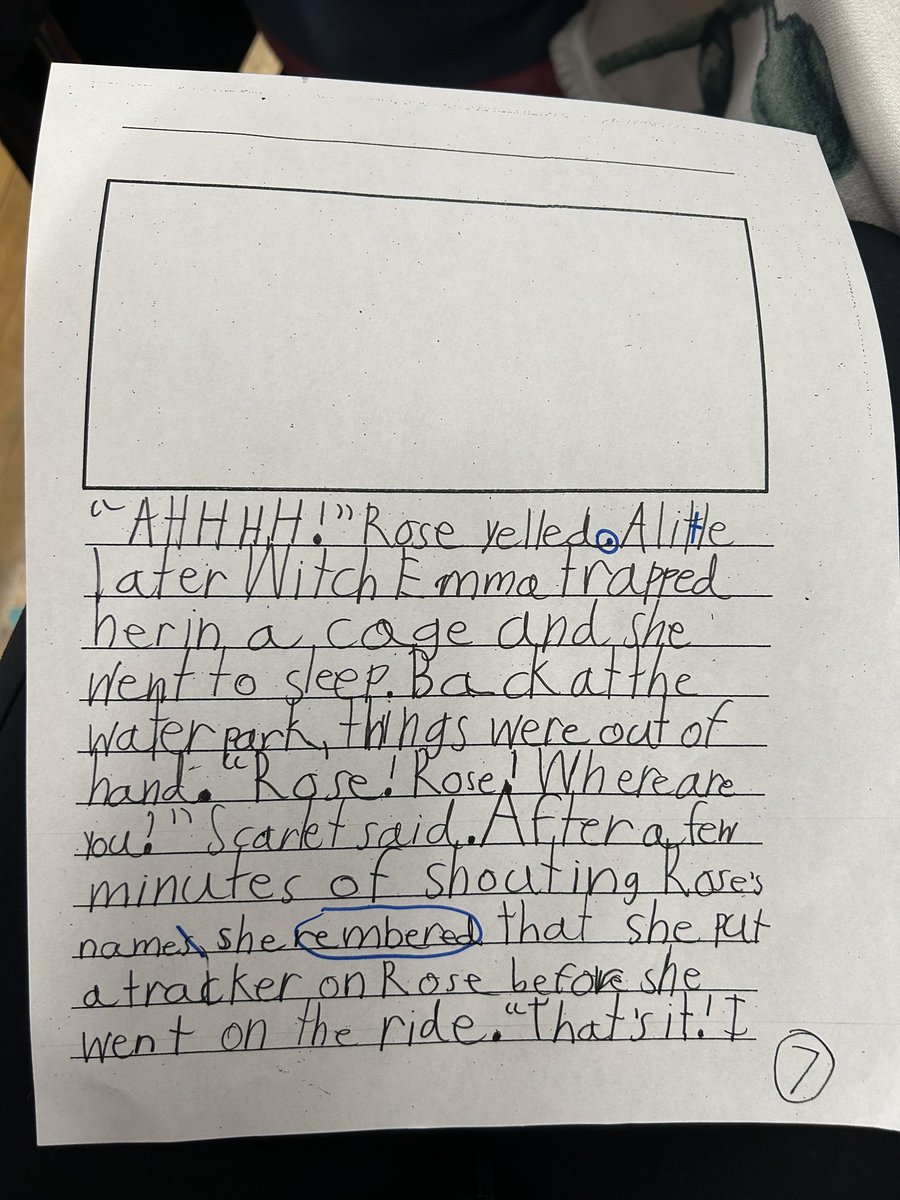 "AHHHH!" Rose yelled. A little
later Witch Emma trapped
her in a cage and she
went to sleep. Back at the
water park, things were out of
hand. "Rose! Rose! Where are
you!" Scarlet said. After a few
minutes of shouting Rose's
name, she rembered that she put
a tracker on Rose before she
went on the ride. "That's it! I
7